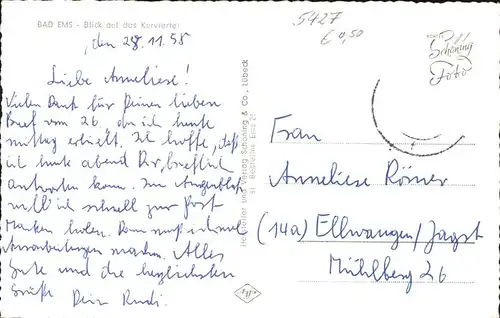 BAD EMS - Blick auf das Kurviertel
5427
€ 0,50
den 28.11.55
Liebe Anneliese!
Vielen Dank für Deinen lieben
Brief vom 26. den ich heute
mittag erhielt. Ich hoffe, daß
ich heute abend Dir brieflich
antworten kann. Im Augenblick
will ich schnell zur Post
Marken holen. Dann muß ich noch
Ausarbeitungen machen. Alles
Gute und die herzlichsten
Grüße Dein Rudi.
Hersteller und Verlag Schöning & Co., Lübeck
Echte
Schöning
Foto
Frau
Anneliese Römer
(14a) Ellwangen/Jagst
Mühlberg 26
Agfa